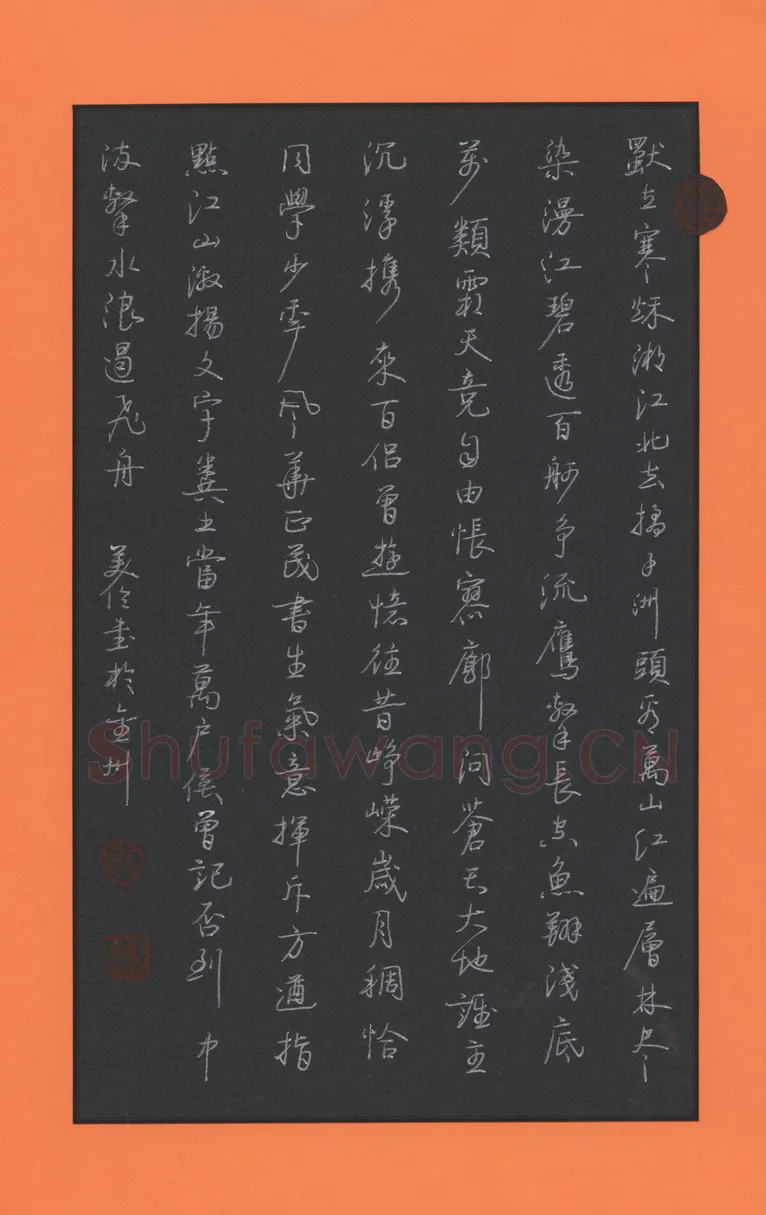 獨立寒秋湘江北去橘子洲頭看萬山红遍層林尽
染漫江碧透百舸争流鷹擊長空魚翔淺底
万類霜天竞自由悵寥廓问蒼茫大地誰主
沉浮携來百侣曾遊憶往昔崢嶸歲月稠恰
同學少年风華正茂書生氣意揮斥方遒指
點江山激揚文字糞土當年萬户侯曾記否到中
流擊水浪遏飞舟 美伶书於金州
Shufawang.CN